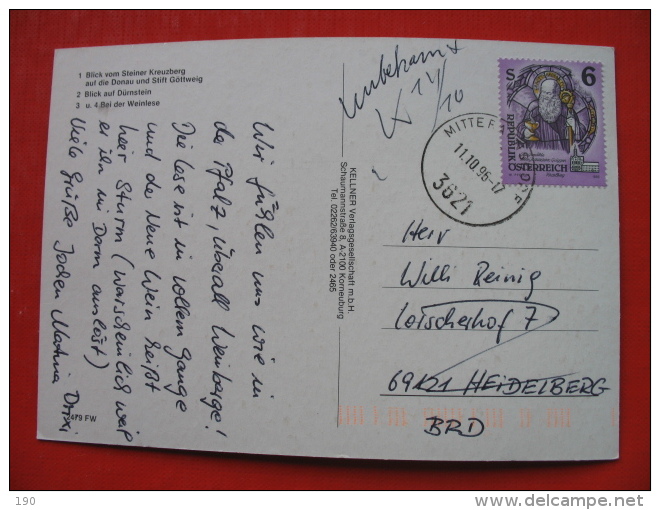 1 Blick vom Steiner Kreuzberg
auf die Donau und Stift Göttweig
2 Blick auf Dürnstein
3 u. 4 Bei der Weinlese
Wir fühlen uns wie in
der Pfalz, überall Weinberge!
Die Lese ist in vollem Gange
und der Neue Wein heißt
hier Sturm (warscheinlich weil
er ihn in Darm auslöst)
Viele Grüße Jochen Martina
479 FW
KELLNER Verlagsgesellschaft m.b.H.
Schaumannstraße 8, A-2100 Korneuburg
Tel. 02262/63940 oder 2465
Unbekannt
14/10
S 6
REPUBLIK
ÖSTERREICH
11.10.95-17
3621
Herr
Willi Beinig
Loischerhof 7
69121 HEIDELBERG
BRD
190
www.delcampe.net